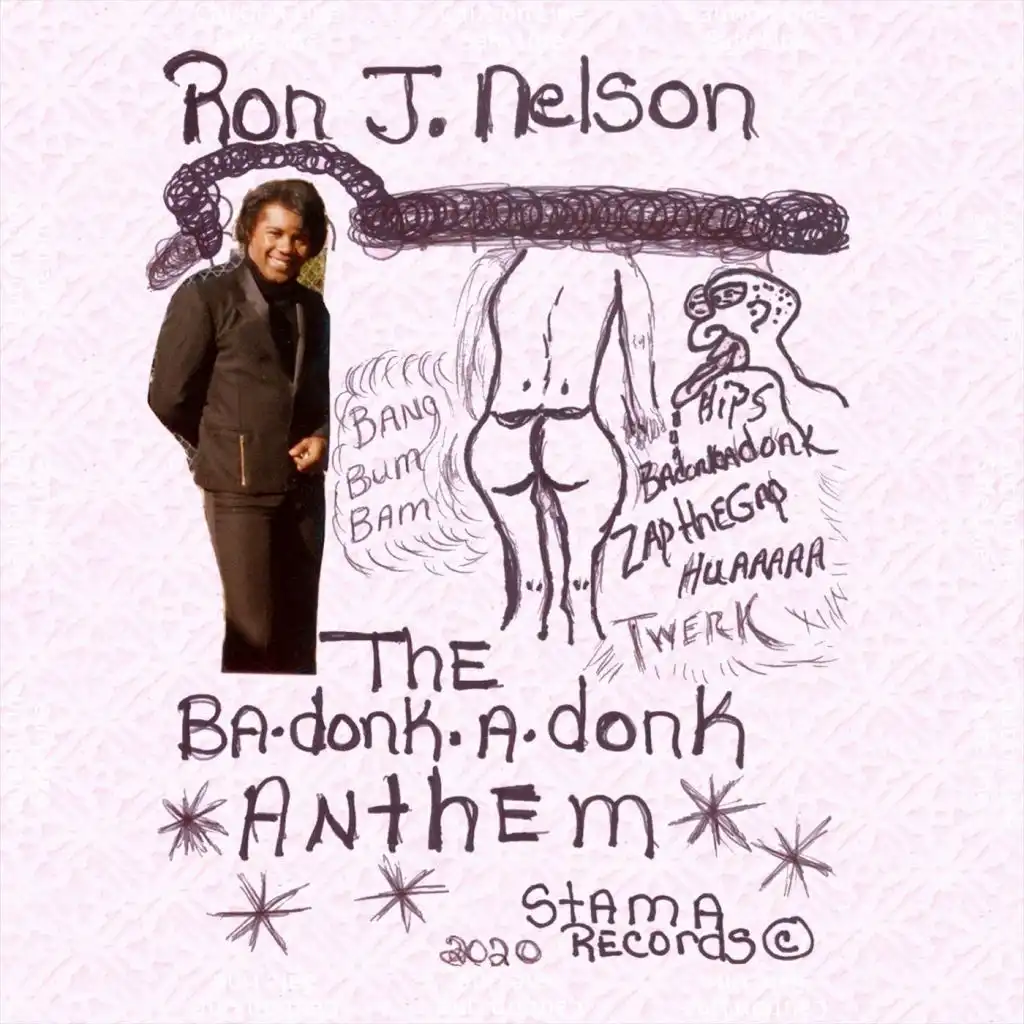 Ron J. Nelson
BANG
BUM
BAM
HiPS
BAdonkAdonK
ZAP tHEGAP
HUAAAAA
TWERK
ThE
BA·donk·A·donk
ANthEm
StAmA
2020 RECordS ©